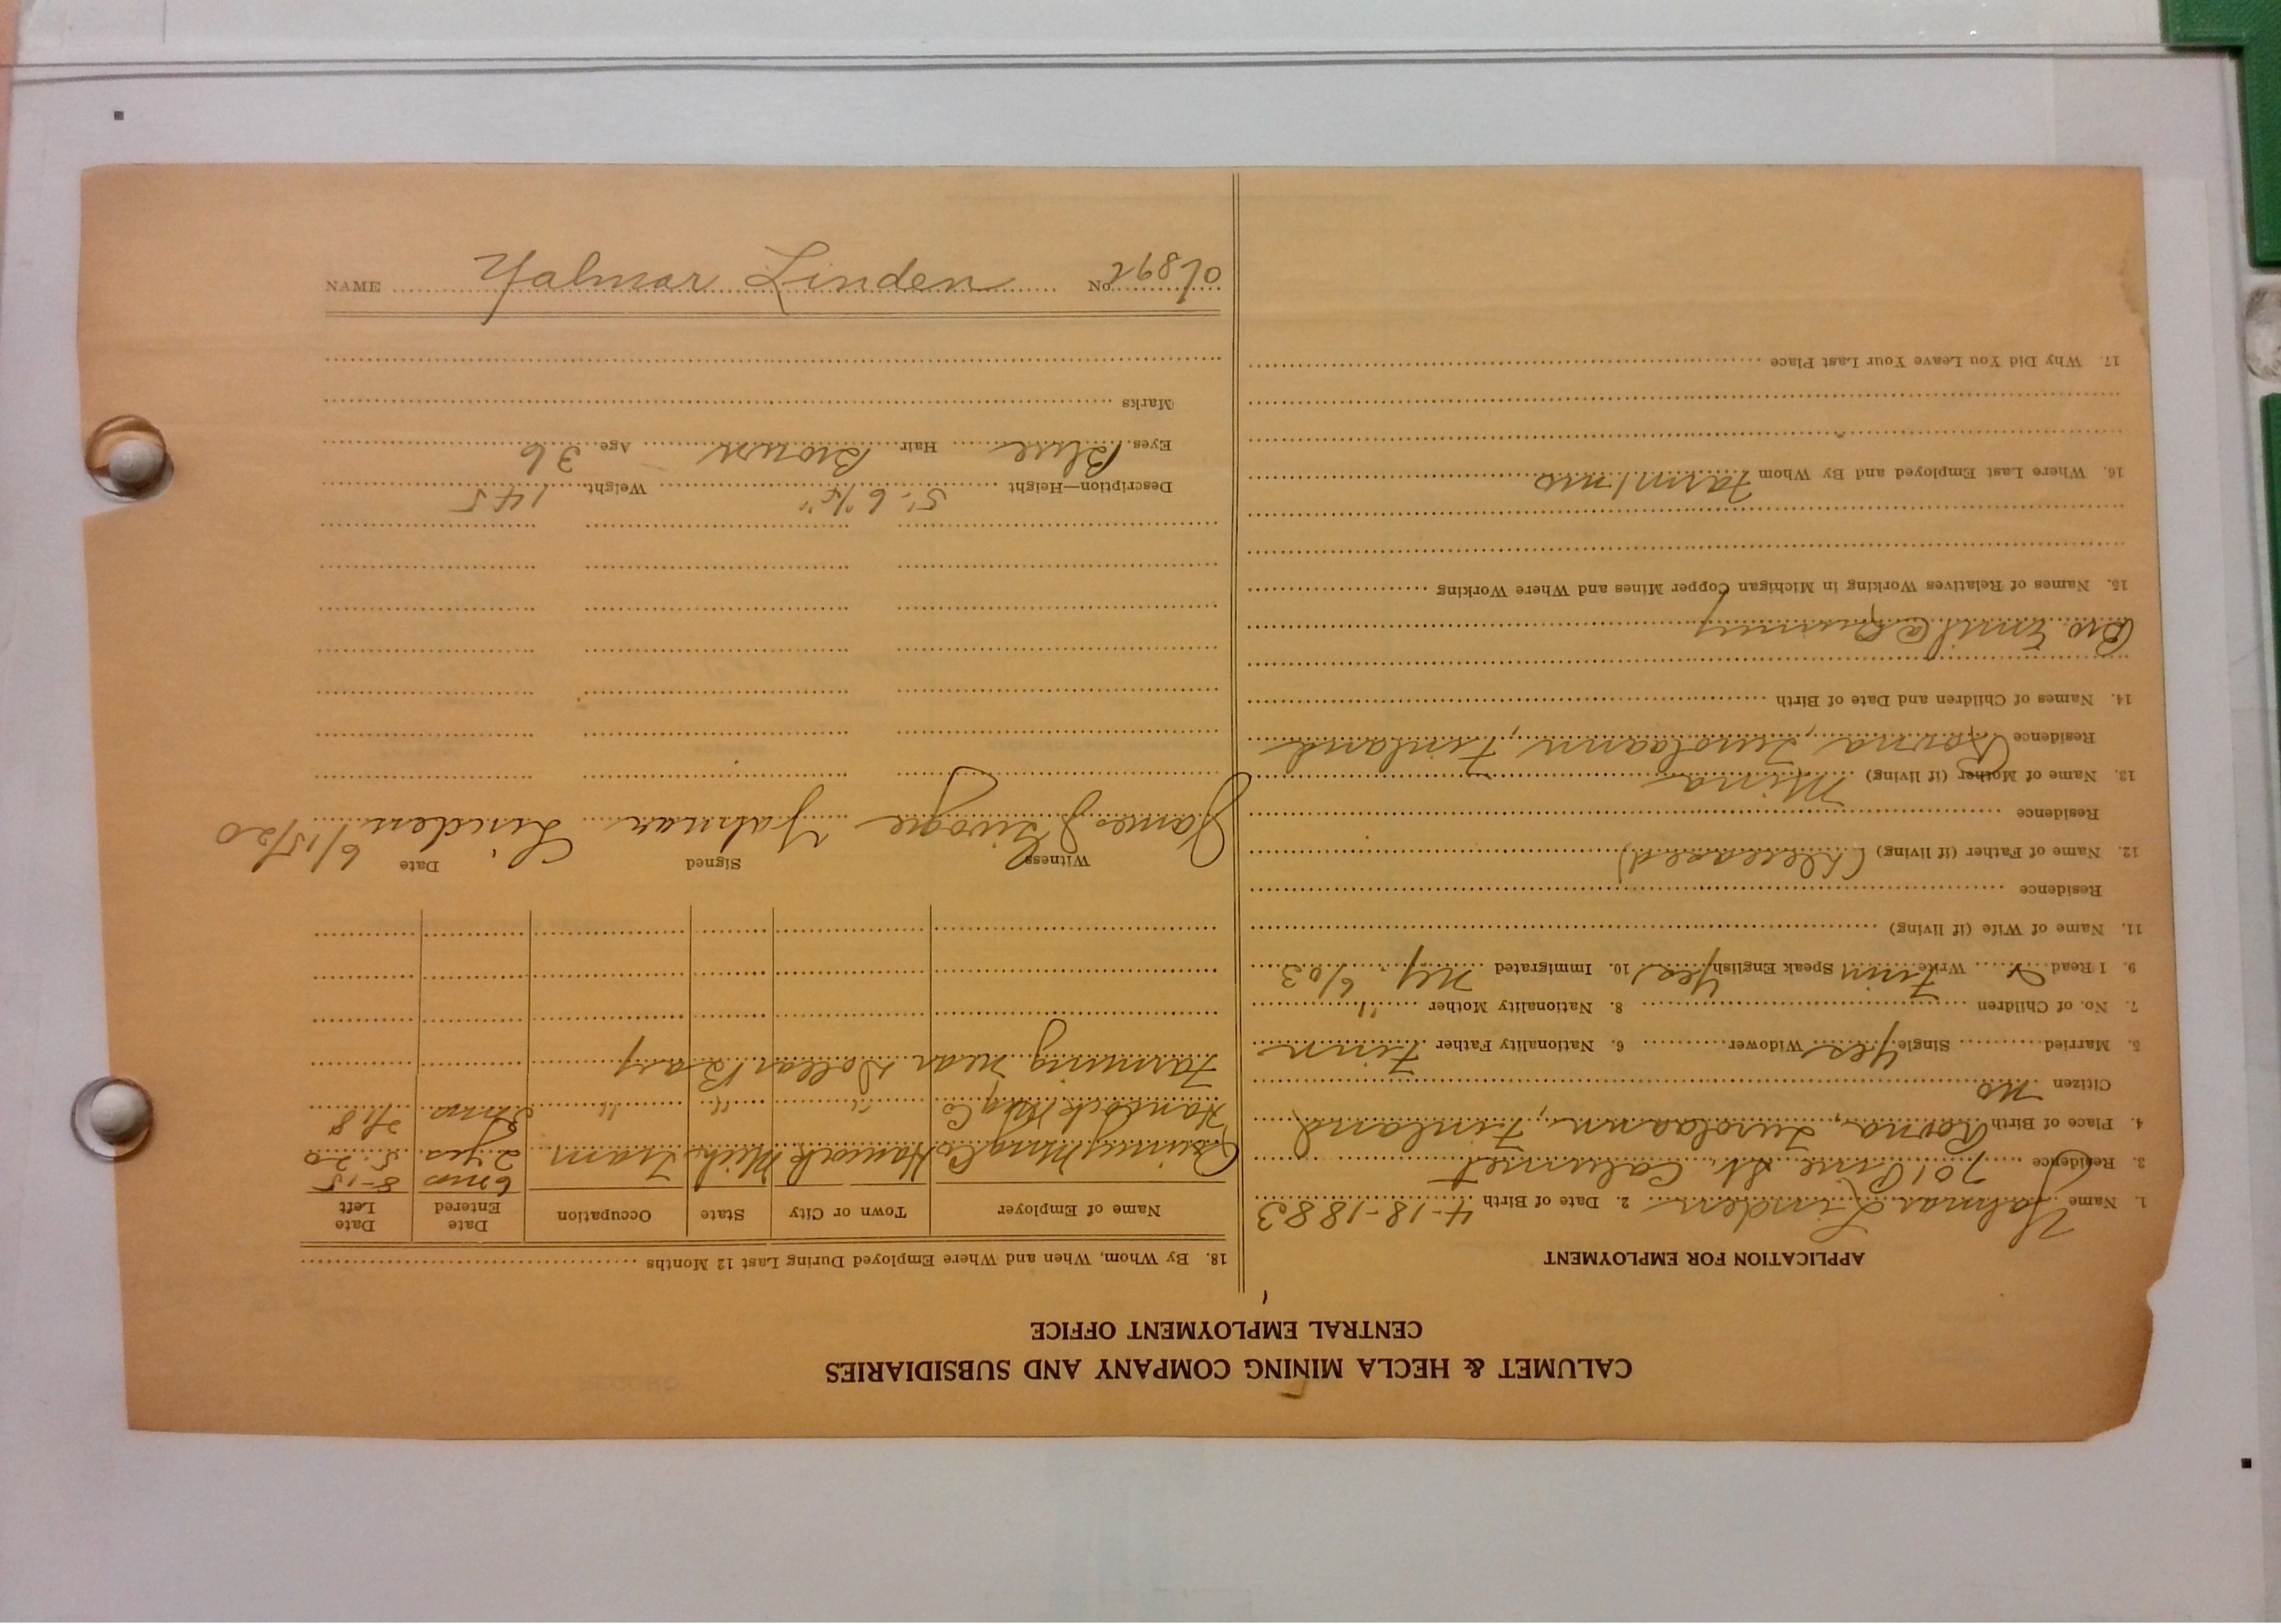 CALUMET & HECLA MINING COMPANY AND SUBSIDIARIES
CENTRAL EMPLOYMENT OFFICE
APPLICATION FOR EMPLOYMENT
1. Name Yalmar Linden 2. Date of Birth 4-18-1883
3. Residence 701 Pine St. Calumet
4. Place of Birth Finland
Citizen no
5. Married Single yes Widower 6. Nationality Father Finn
7. No. of Children 8. Nationality Mother "
9. I Read & Write Finn Speak English yes 10. Immigrated N.Y. 6/03
11. Name of Wife (if living)
Residence
12. Name of Father (if living) (deceased)
Residence
13. Name of Mother (if living) Mina
Residence Finland
14. Names of Children and Date of Birth
Bro. Emil @ Quincy
15. Names of Relatives Working in Michigan Copper Mines and Where Working
16. Where Last Employed and By Whom Farm 1 mo
17. Why Did You Leave Your Last Place
18. By Whom, When and Where Employed During Last 12 Months
Name of Employer Town or City State Occupation Date Entered Date Left
6 mos 8-15
Quincy Mng Co Hancock Mich. Tram 2 yrs 5-20
Hancock Mng Co " " " mos 18
Farming near Dollar Bay
Witness Signed Date
James Yalmar Linden 6/15/20
Description—Height 5'-6 Weight 145
Eyes Blue Hair Brown Age 36
Marks
NAME Yalmar Linden No